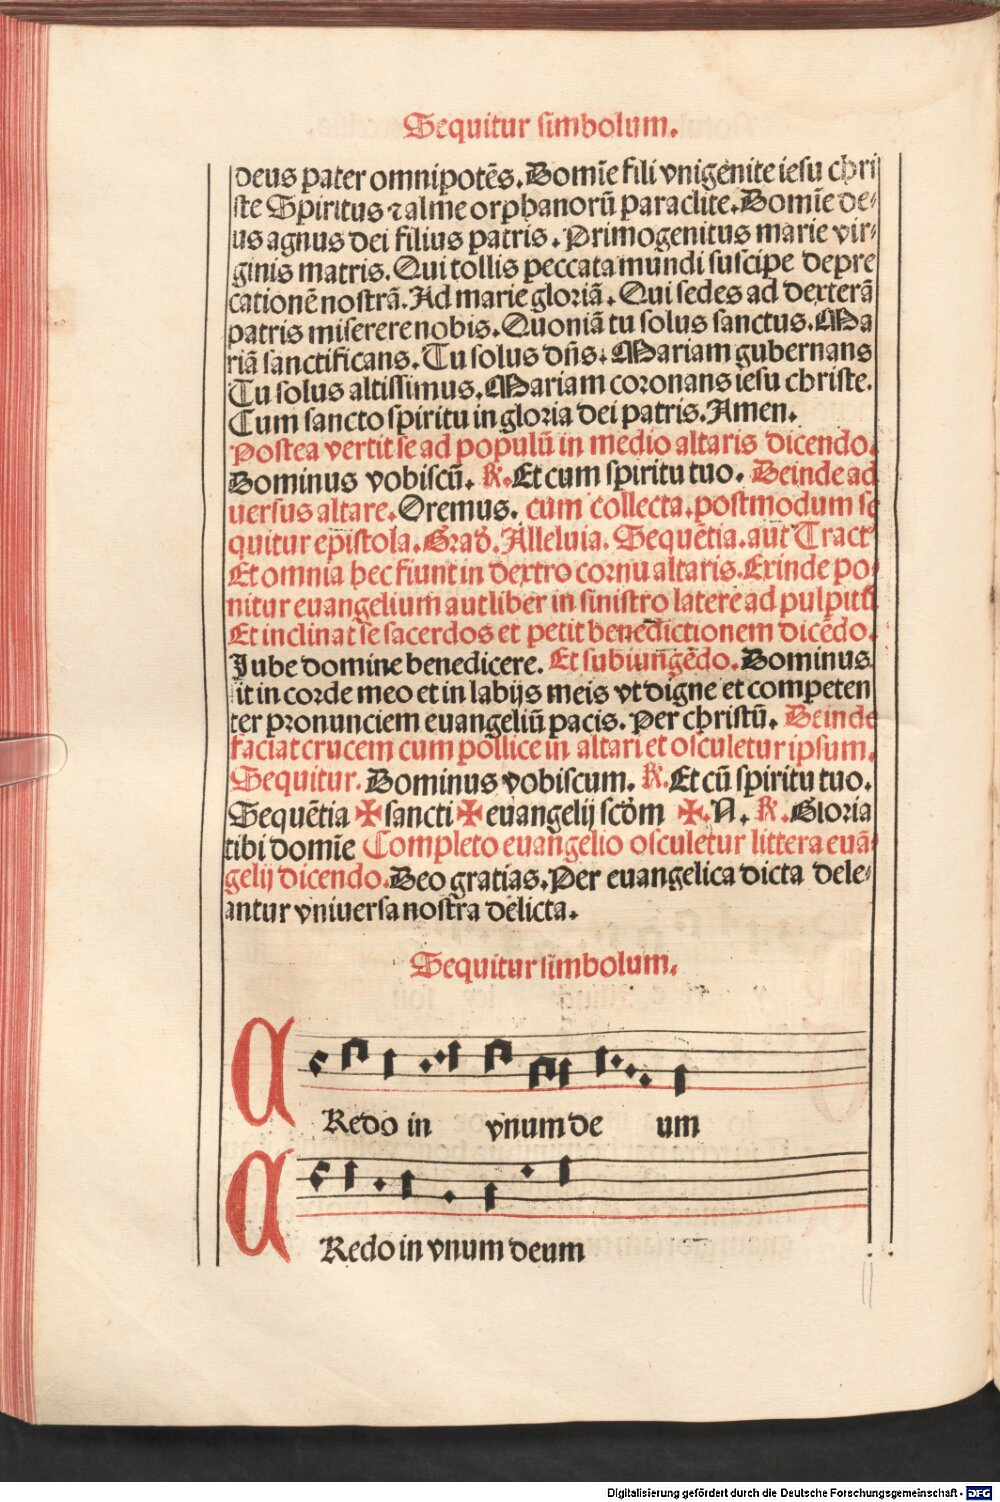 Sequitur simbolum.
deus pater omnipotēs. Domīe fili vnigenite iesu chri
ste Spiritus ⁊ alme orphanorū paraclite. Domīe de-
us agnus dei filius patris. Primogenitus marie vir-
ginis matris. Qui tollis peccata mundi suscipe depre
cationē nostrā. Ad marie gloriā. Qui sedes ad dexterā
patris miserere nobis. Quoniā tu solus sanctus. Ma
riā sanctificans. Tu solus dn̄s. Mariam gubernans
Tu solus altissimus. Mariam coronans iesu christe.
Cum sancto spiritu in gloria dei patris. Amen.
Postea vertit se ad populū in medio altaris dicendo.
Dominus vobiscū. ℟. Et cum spiritu tuo. Deinde ad
uersus altare. Oremus. cum collecta. postmodum se
quitur epistola. Grad. Alleluia. Sequētia. aut Tract
Et omnia hec fiunt in dextro cornu altaris. Exinde po-
nitur euangelium aut liber in sinistro latere ad pulpitū
Et inclinat se sacerdos et petit benedictionem dicēdo.
Jube domine benedicere. Et subiungēdo. Dominus
sit in corde meo et in labijs meis vt digne et competen
ter pronunciem euangeliū pacis. Per christū. Deinde
faciat crucem cum pollice in altari et osculetur ipsum.
Sequitur. Dominus vobiscum. ℟. Et cū spiritu tuo.
Sequētia ✠ sancti ✠ euangelij scd̄m ✠. N. ℟. Gloria
tibi domīe Completo euangelio osculetur littera euā-
gelij dicendo. Deo gratias. Per euangelica dicta dele-
antur vniuersa nostra delicta.
Sequitur simbolum.
CRedo in vnum de um
CRedo in vnum deum
Digitalisierung gefördert durch die Deutsche Forschungsgemeinschaft - DFG